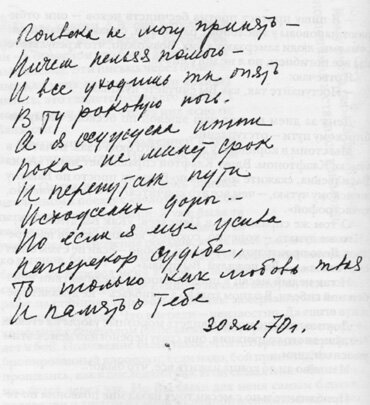 Полвека не могу принять –
Ничем нельзя помочь –
И все уходишь ты опять
В ту роковую ночь.
А я осуждена итти
Пока не минет срок
И перепутаны пути
Исхоженных дорог..
Но если я еще жива
Наперекор судьбе,
То только как любовь твоя
И память о тебе
30 янв 70 г.